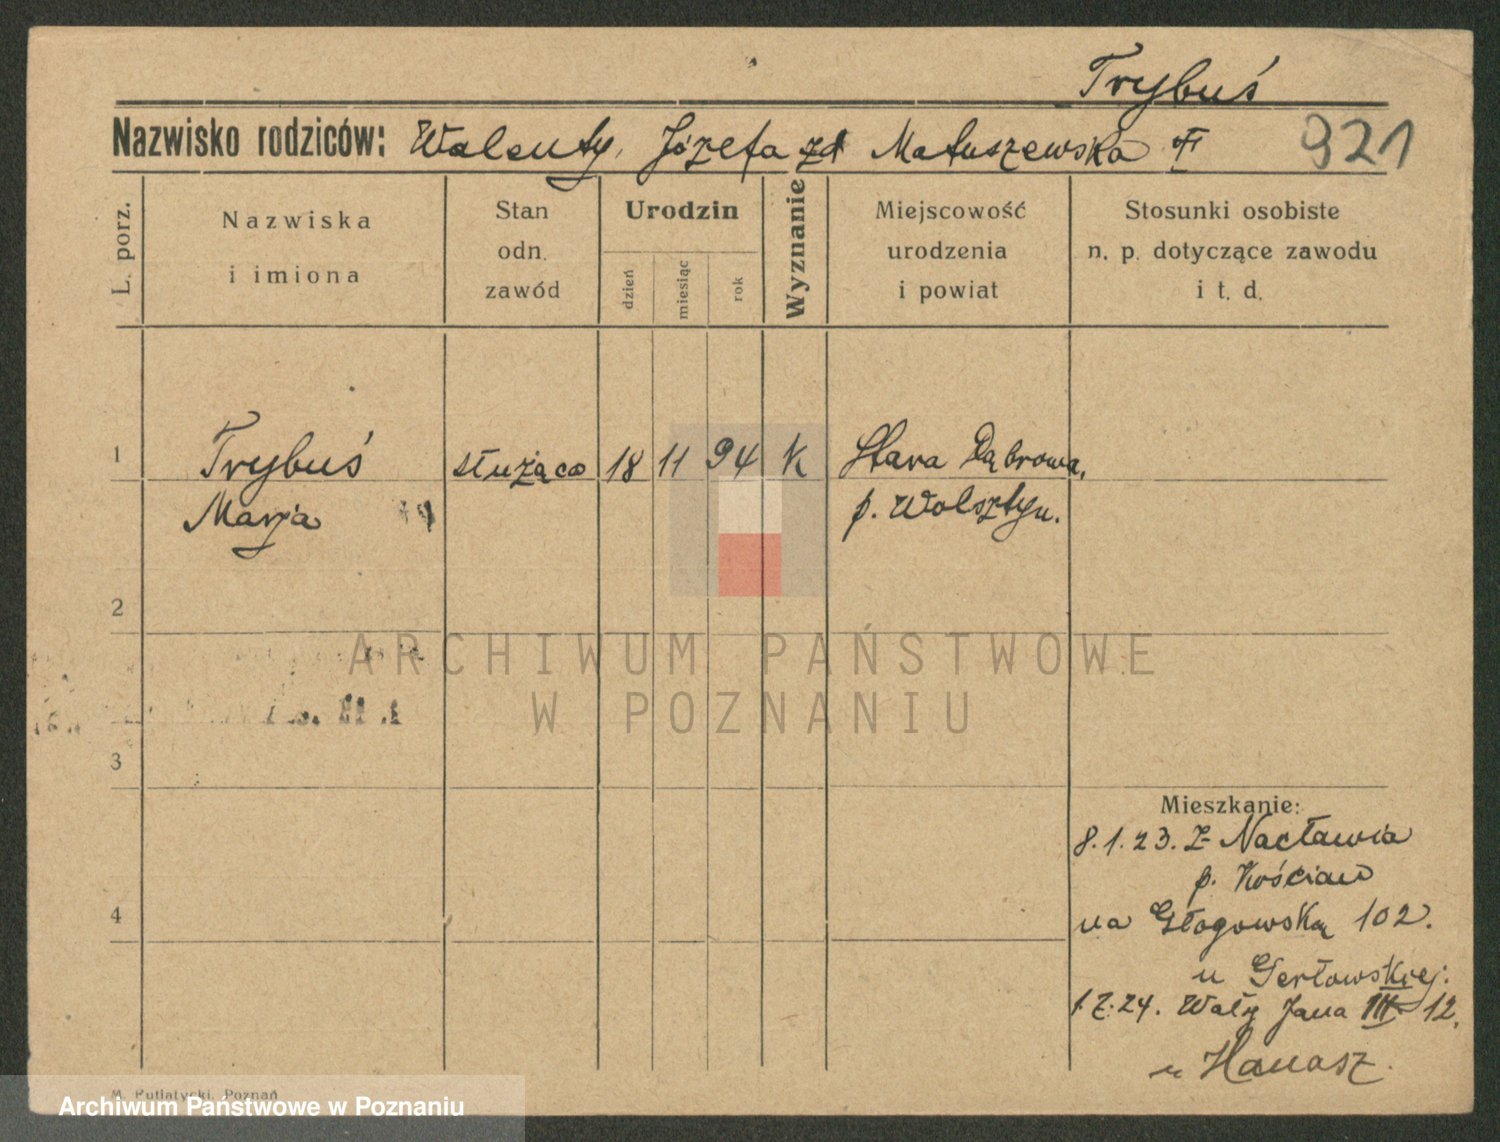 Trybuś
Nazwisko rodziców: Walenty, Józefa zd Matuszewska
921
L. porz.
Nazwiska
i imiona
Stan
odn.
zawód
Urodzin
dzień
miesiąc
rok
Wyznanie
Miejscowość
urodzenia
i powiat
Stosunki osobiste
n. p. dotyczące zawodu
i t. d.
1 Trybuś służąca 18 11 94 K Stara Dąbrowa,
Marja p. Wolsztyn.
2
ARCHIWUM PAŃSTWOWE
W POZNANIU
3
Mieszkanie:
8.1.23. z Nacławia
p. Kościan
4
na Głogowską 102.
u Gerłowskiej.
1.7.24. Wały Jana III 12.
u Hanasz.
M. Putiatycki, Poznań
Archiwum Państwowe w Poznaniu